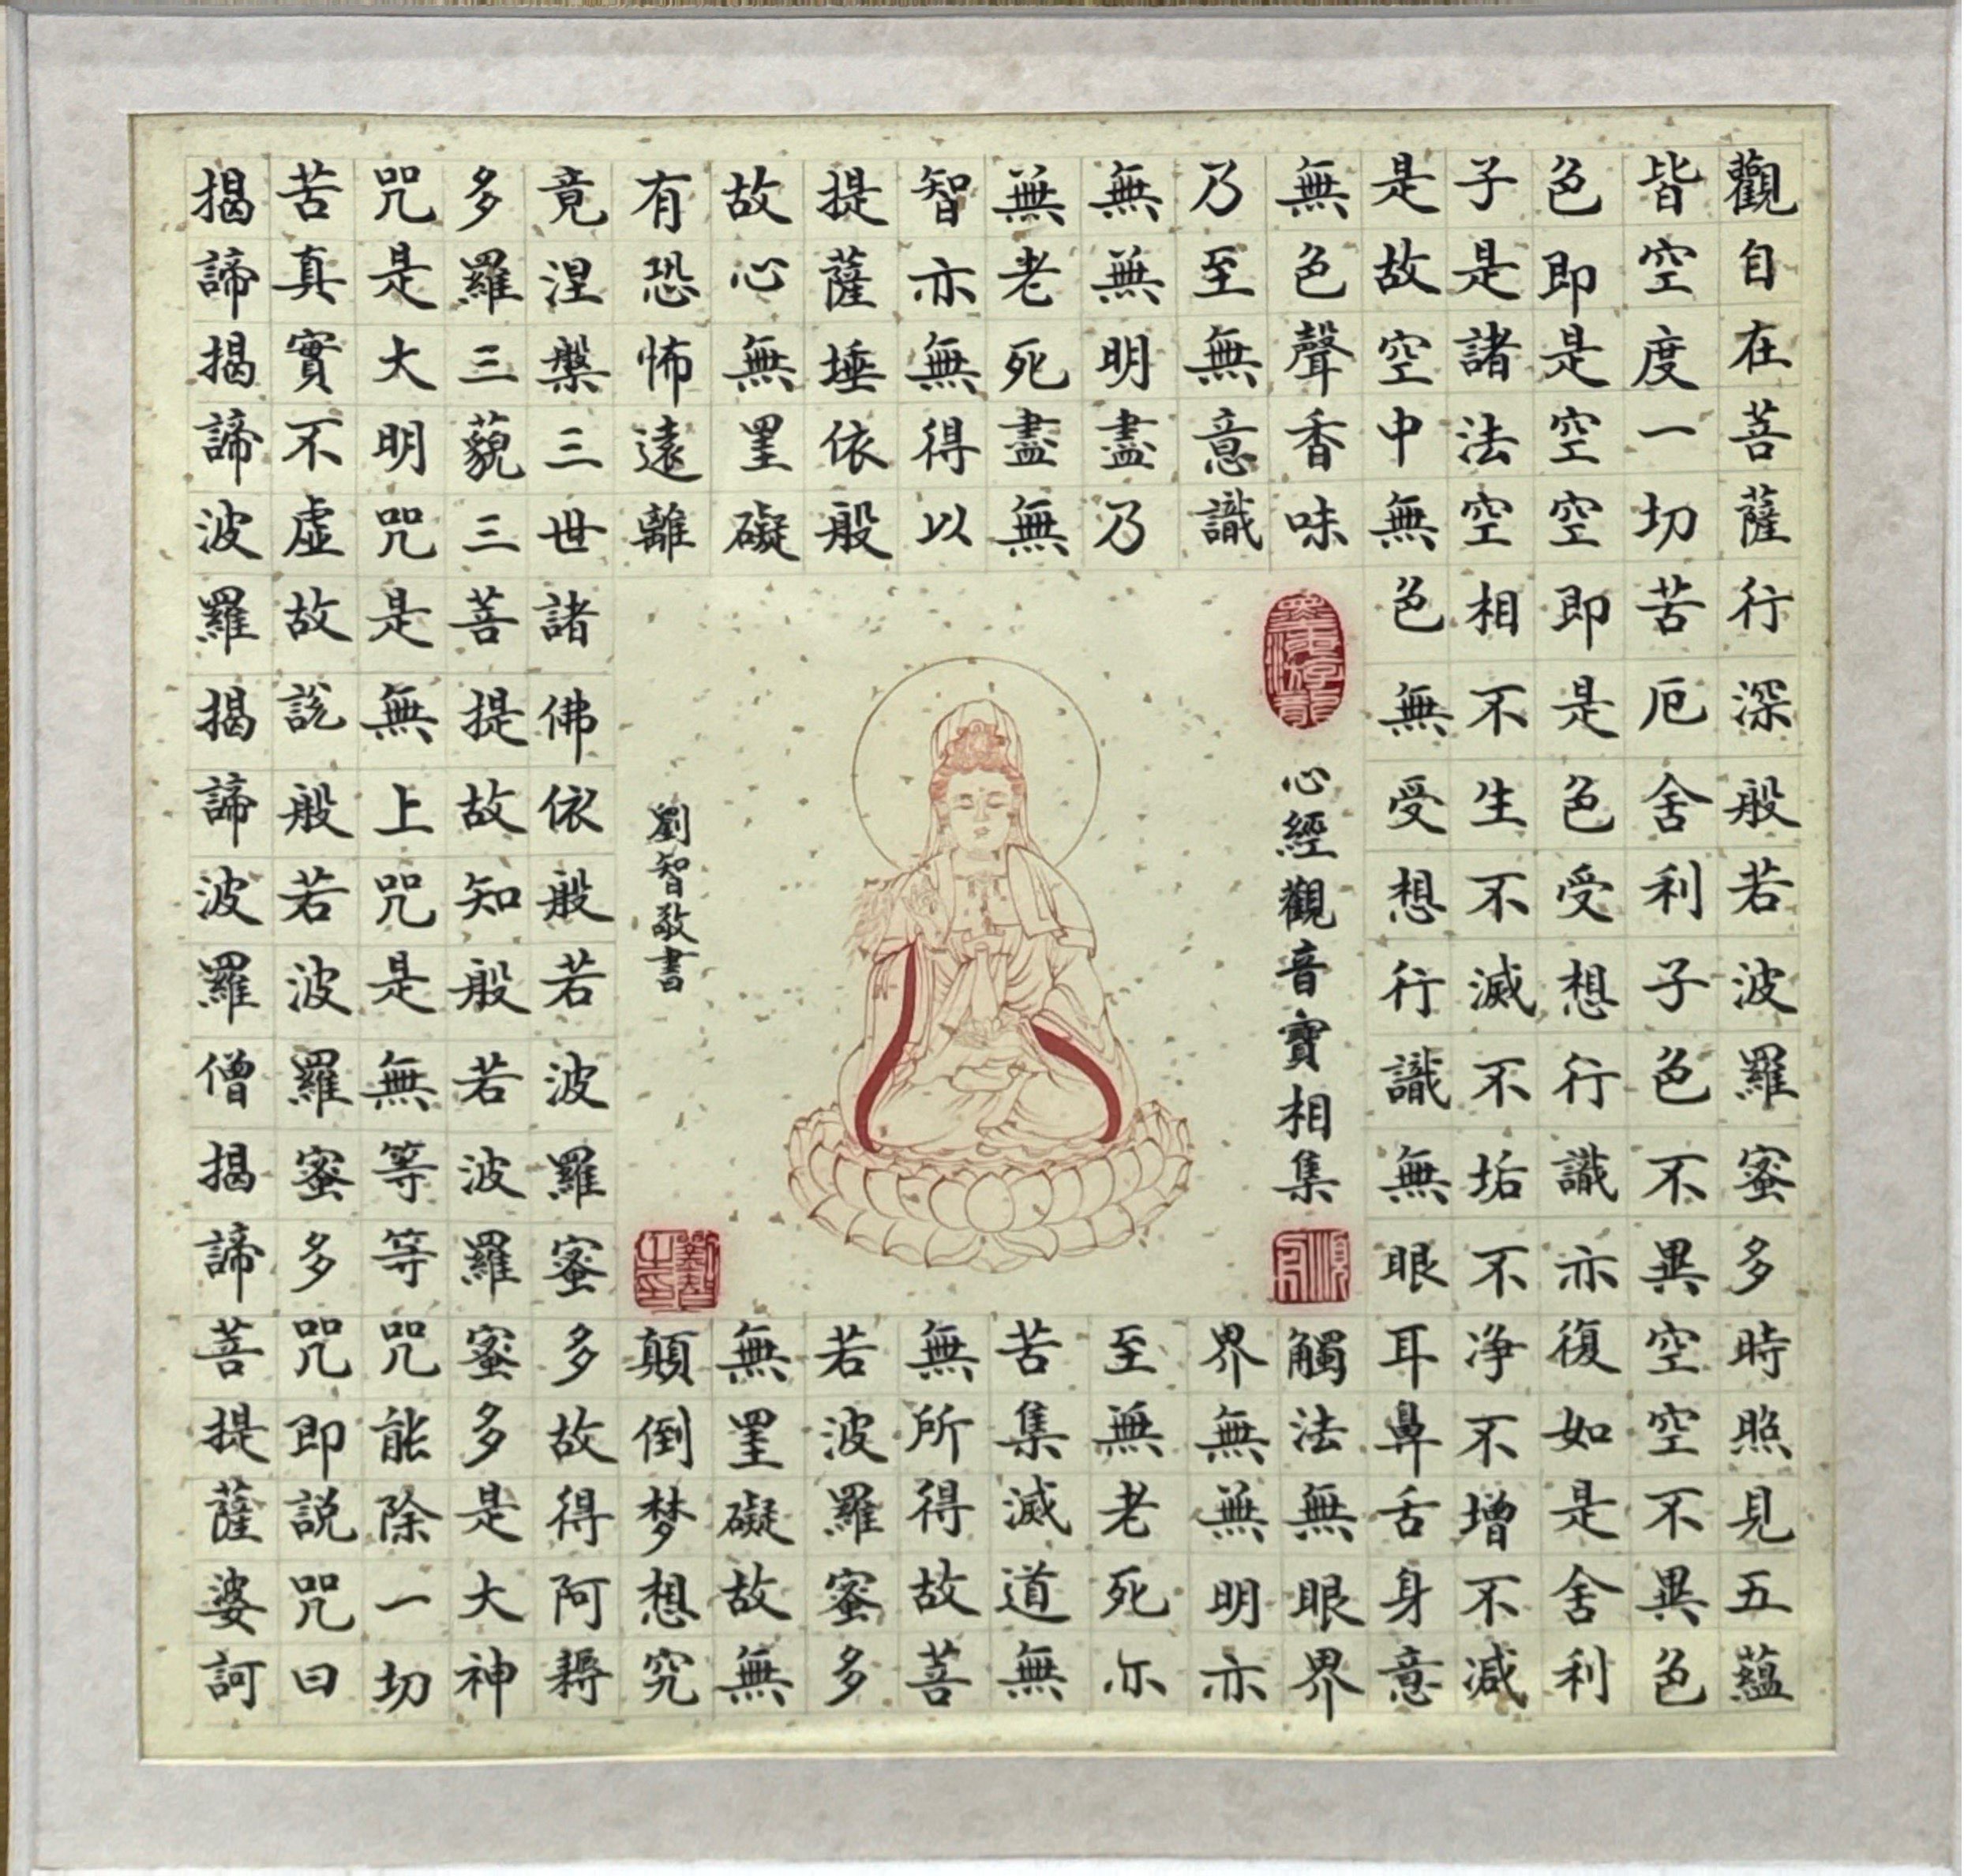 觀自在菩薩行深般若波羅蜜多時照見五蘊
皆空度一切苦厄舍利子色不異空空不異色
色即是空空即是色受想行識亦復如是舍利
子是諸法空相不生不滅不垢不净不增不減
是故空中無色無受想行識無眼耳鼻舌身意
無色聲香味觸法無眼界
乃至無意識界無無明亦
無無明盡乃至無老死亦
無老死盡無苦集滅道無
智亦無得以無所得故菩
提薩埵依般若波羅蜜多
故心無罣礙無罣礙故無
有恐怖遠離顛倒梦想究
竟涅槃三世諸佛依般若波羅蜜多故得阿耨
多羅三藐三菩提故知般若波羅蜜多是大神
咒是大明咒是無上咒是無等等咒能除一切
苦真實不虛故說般若波羅蜜多咒即説咒曰
揭諦揭諦波羅揭諦波羅僧揭諦菩提薩婆訶
心經觀音寶相集
劉智敬書
劉智之印